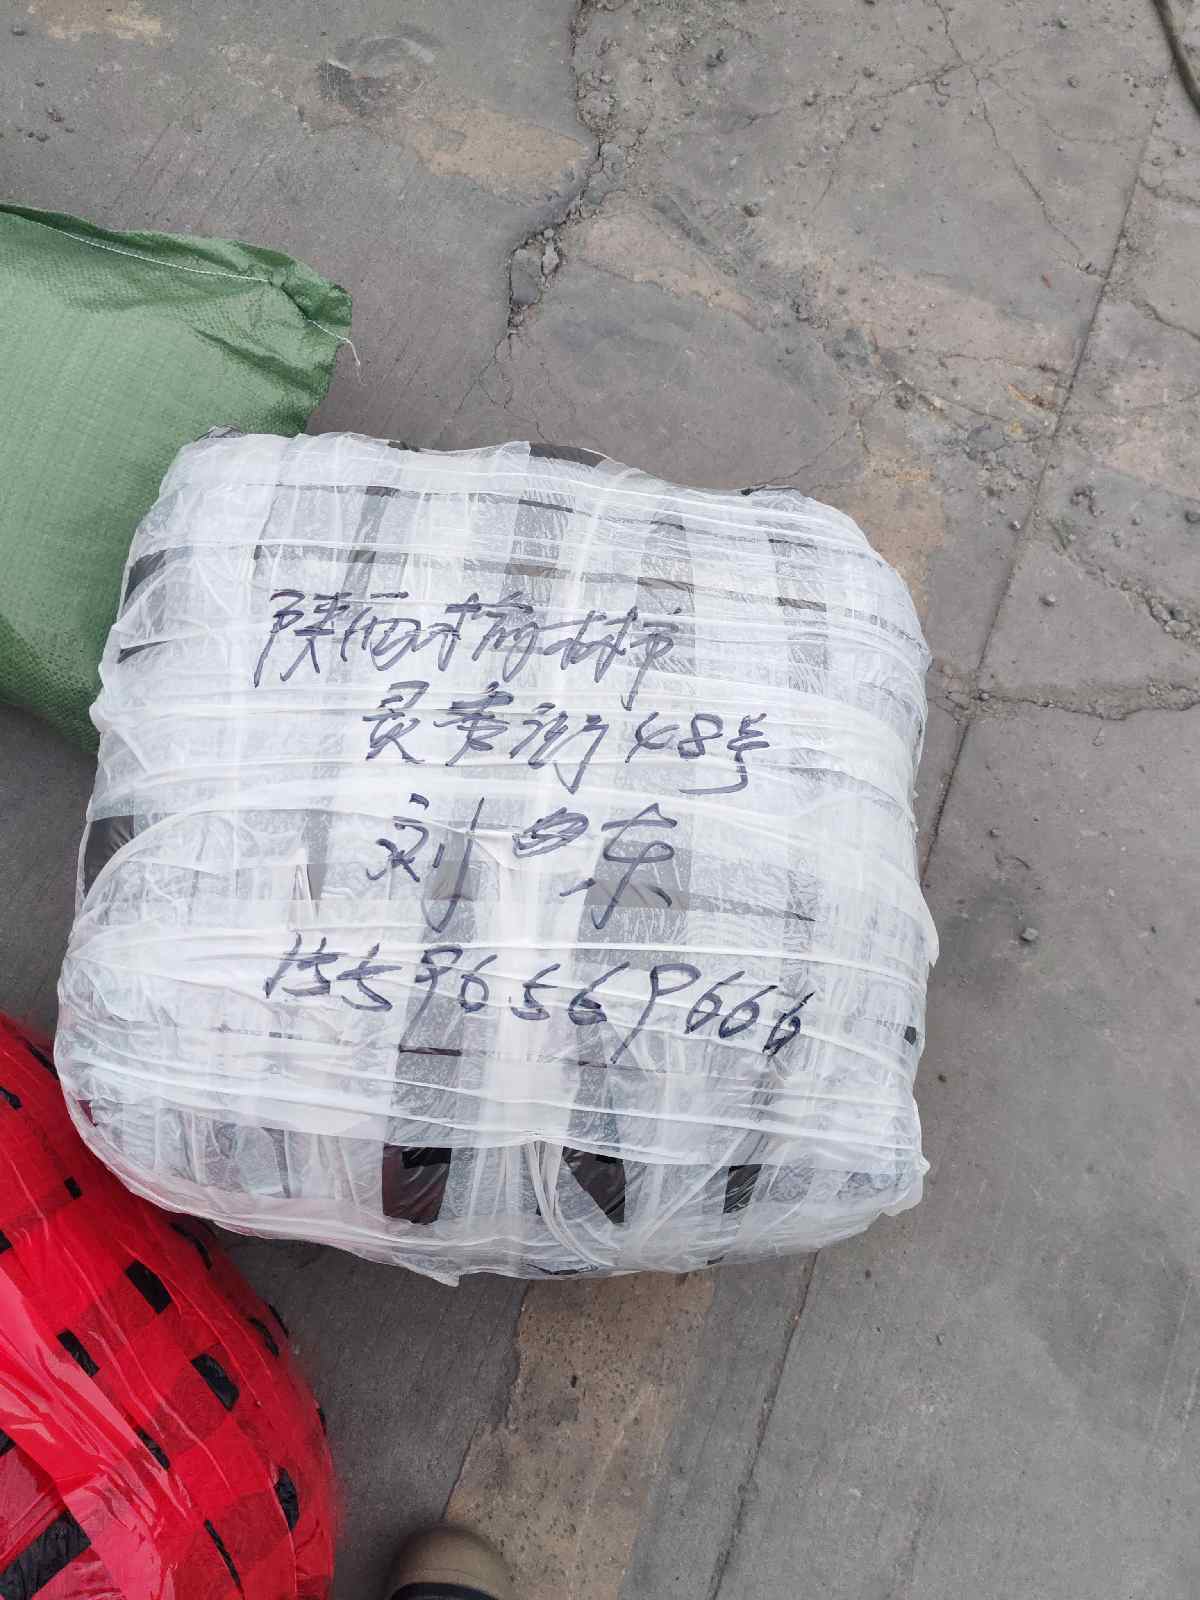 陕西榆林市
灵秀街48号
刘四东
15596569666